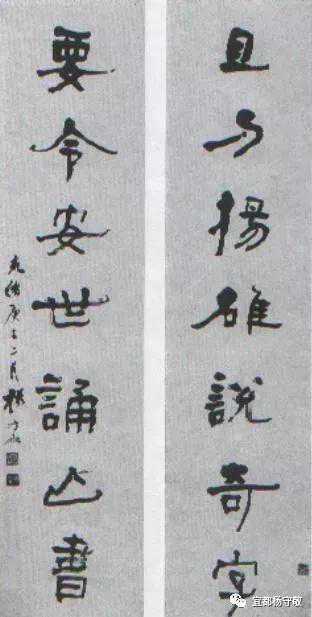 且与揚雄說奇字
要令安世誦亡書
光緒庚子二月楊守敬
宜都杨守敬